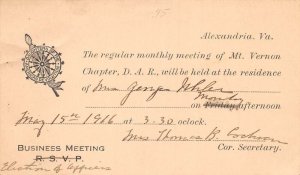 Alexandria, Va.
The regular monthly meeting of Mt. Vernon
Chapter, D. A. R., will be held at the residence
of Mrs George
Monday
on Friday afternoon
May 15th 1916 at 3-30 o'clock.
Mrs Thomas B. Cochran
BUSINESS MEETING Cor. Secretary.
R. S. V. P.
Election of officers